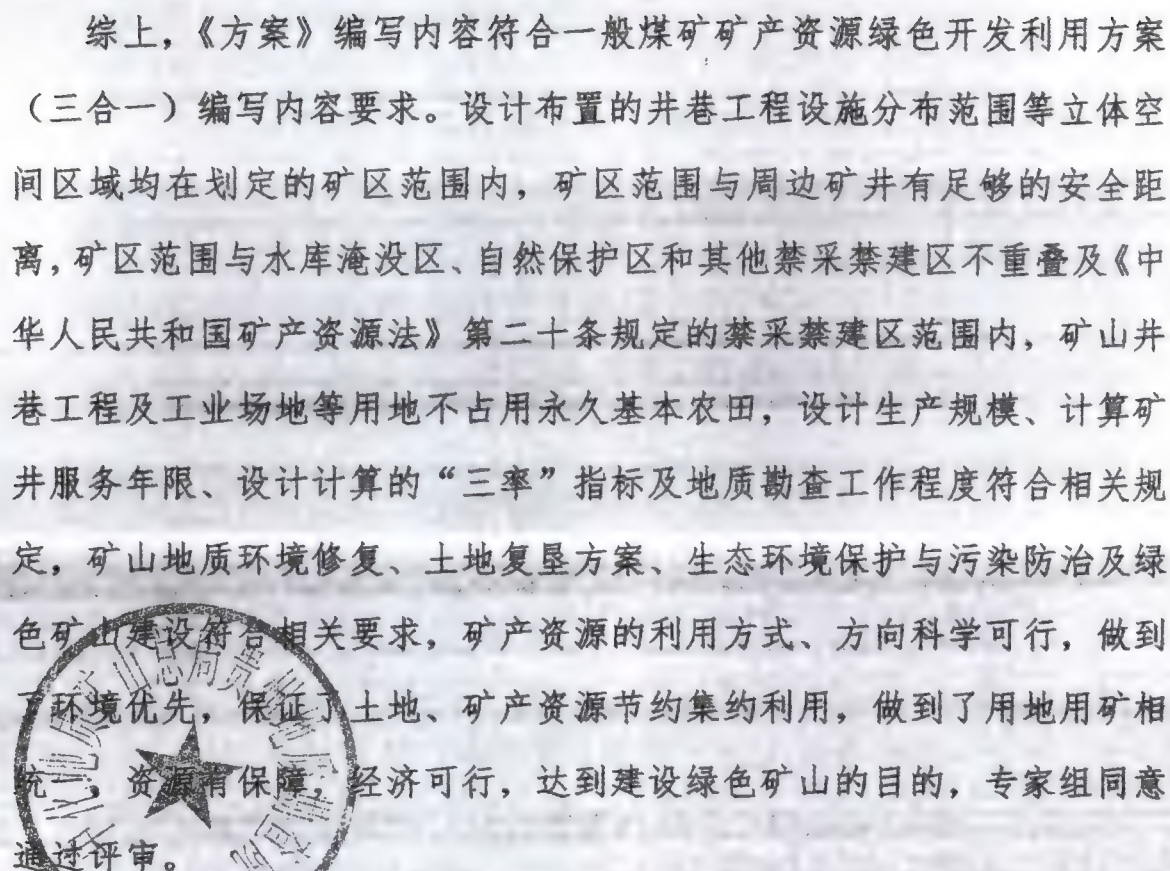 综上，《方案》编写内容符合一般煤矿矿产资源绿色开发利用方案
（三合一）编写内容要求。设计布置的井巷工程设施分布范围等立体空
间区域均在划定的矿区范围内，矿区范围与周边矿井有足够的安全距
离，矿区范围与水库淹没区、自然保护区和其他禁采禁建区不重叠及《中
华人民共和国矿产资源法》第二十条规定的禁采禁建区范围内，矿山井
巷工程及工业场地等用地不占用永久基本农田，设计生产规模、计算矿
井服务年限、设计计算的“三率”指标及地质勘查工作程度符合相关规
定，矿山地质环境修复、土地复垦方案、生态环境保护与污染防治及绿
色矿山建设符合相关要求，矿产资源的利用方式、方向科学可行，做到
了环境优先，保证了土地、矿产资源节约集约利用，做到了用地用矿相
统一，资源有保障，经济可行，达到建设绿色矿山的目的，专家组同意
通过评审。